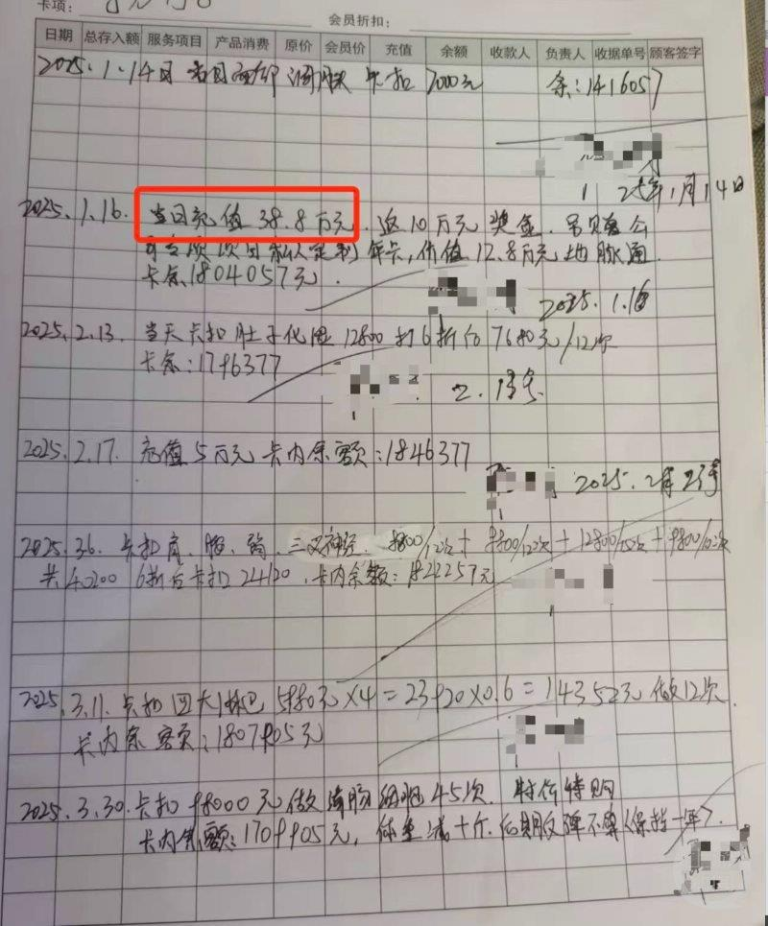 卡项:
会员折扣:
日期 总存入额 服务项目 产品消费 原价 会员价 充值 余额 收款人 负责人 收据单号 顾客签字
2025.1.14日 当日 卡扣 7000元 余:1416057
25年1月14日
2025.1.16. 当日充值 38.8万元. 返10万元 奖金.
私人定制 年卡,价值 12.8万元 地脉通
卡余1804057元.
2025.1.16
2025.2.13. 当天卡扣 肚子 12800 打6折后 7680元/12次
卡余:1796377
2.13号.
2025.2.17. 充值5万元 卡内余额:1846377
2025.2月23号
2025.3.6. 卡扣 肩、 三叉神经. 9800/12次+ 9800/12次+12800/12次+9800/12次
共:40200 6折后卡扣24120.卡内余额:1822257元
2025.3.11.卡扣 四大淋巴 5980元×4=23920×0.6=14352元 做12次.
卡内余额:1807905元
2025.3.30.卡扣 98000元做 45次. 特价特购
卡内余额:1709905元, 体重减十斤.后期反弹不算(保持一年).